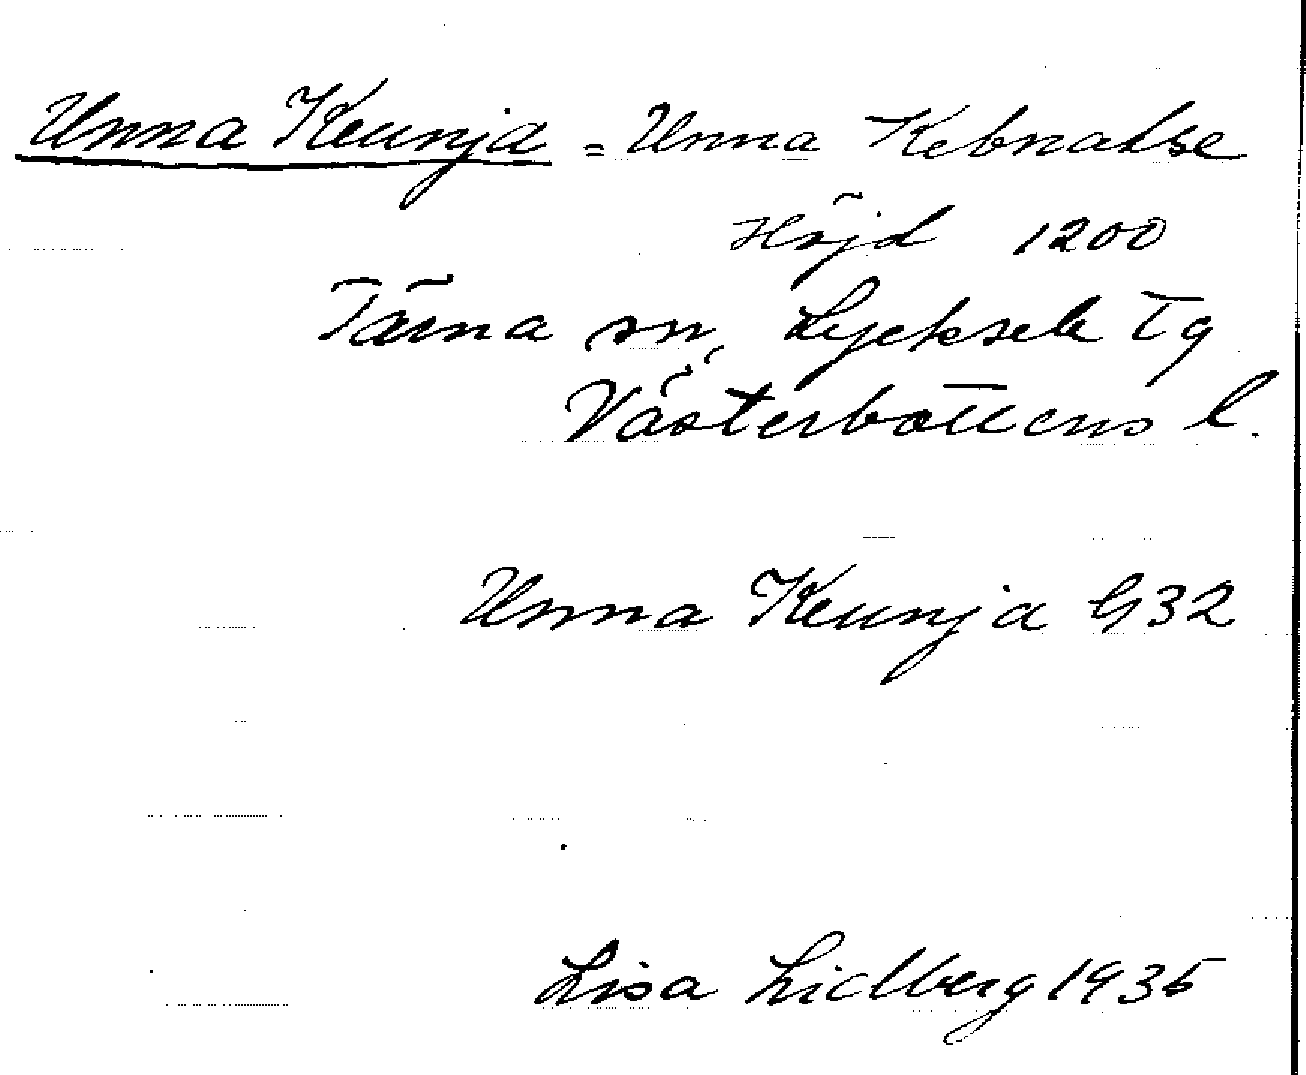 Unna Keunja = Unna Kebnatse
Höjd 1200
Tärna sn, Lycksele Tg
Västerbottens l.
Unna Keunja G32
Lisa Lidberg 1935